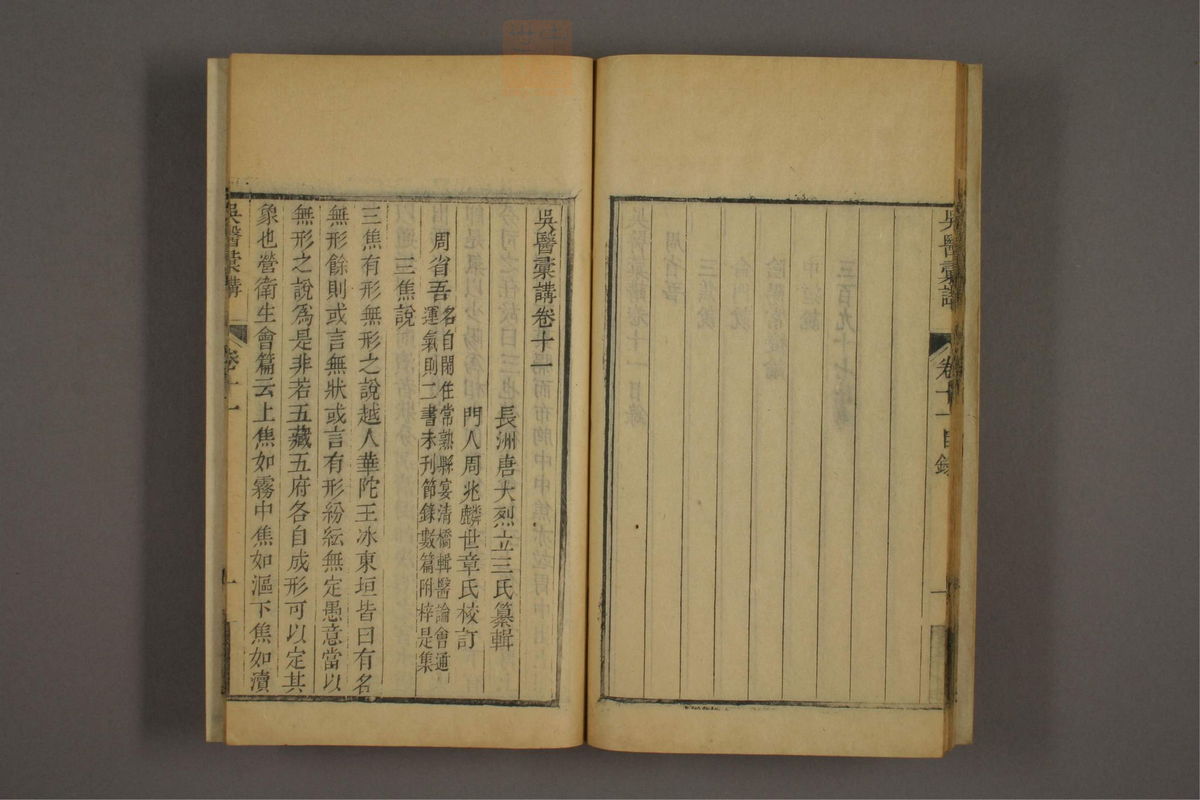 吳醫彙講
卷十一目錄
一
吳醫彙講卷十一
長洲唐大烈立三氏纂輯
門人周兆麟世章氏校訂
周省吾
名自閒住常熟縣宴清橋輯醫論會通
運氣則二書未刊節錄數篇附梓是集
三焦說
三焦有形無形之說越人華陀王冰東垣皆曰有名
無形餘則或言無狀或言有形紛紜無定愚意當以
無形之說爲是非若五藏五府各自成形可以定其
象也營衛生會篇云上焦如霧中焦如漚下焦如瀆
吳醫彙講
卷十一
一